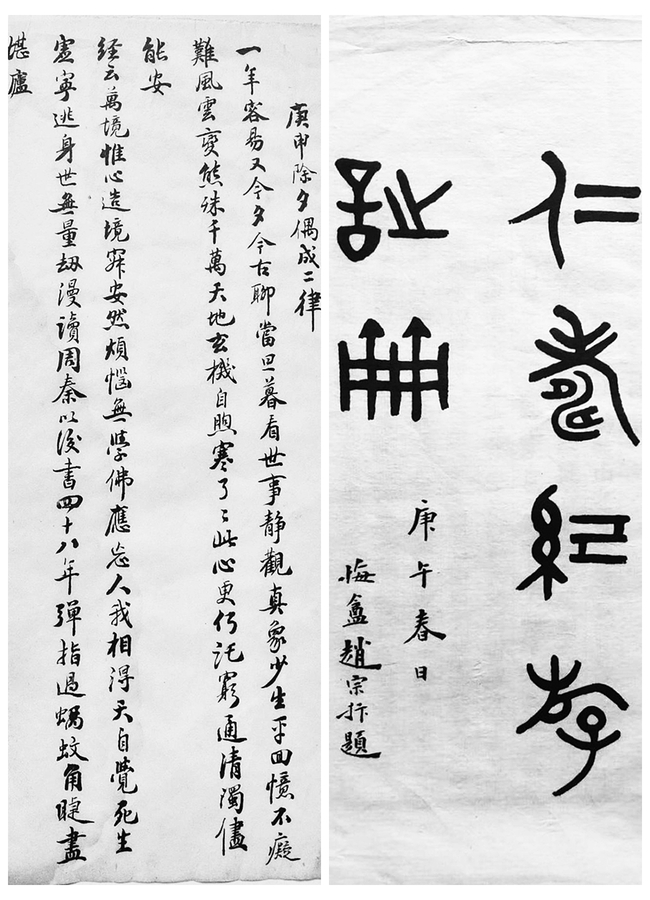 仁紀存
詩冊
庚午春日
悔盦趙宗抃題
庚申除夕偶成二律
一年容易又今夕今古聊當旦暮看世事静觀真象少生平回憶不癡
難風雲變態殊千萬天地玄機自煦寒了〻此心更何託窮通清濁儘
能安
経云萬境惟心造境寂安然煩惱無學佛應忘人我相得天自覺死生
虛寧逃身世無量劫漫讀周秦以後書四十八年彈指過蝸蚊角睫盡
堪廬